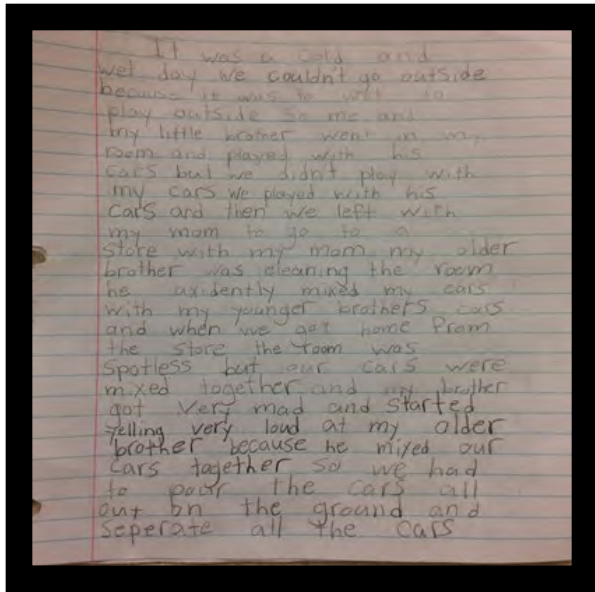 It was a cold and
wet day we couldn't go outside
because it was to wet to
play outside so me and
my little brother went in my
room and played with his
cars but we didn't play with
my cars we played with his
cars and then we left with
my mom to go to a
store with my mom my older
brother was cleaning the room
he axidently mixed my cars
with my younger brothers cars
and when we got home from
the store the room was
spotless but our cars were
mixed together and my brother
got very mad and started
yelling very loud at my older
brother because he mixed our
cars together so we had
to pour the cars all
out on the ground and
seperate all the cars